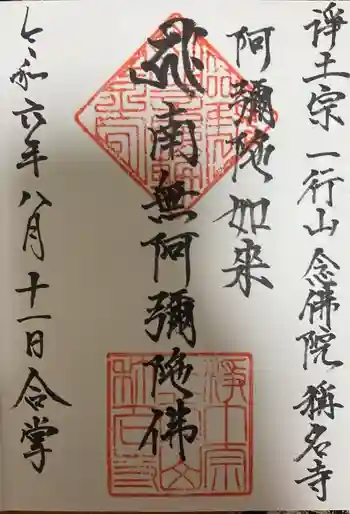 浄土宗 一行山 念佛院 稱名寺
阿彌陀如來
南無阿彌陀佛
令和六年八月十一日 合掌